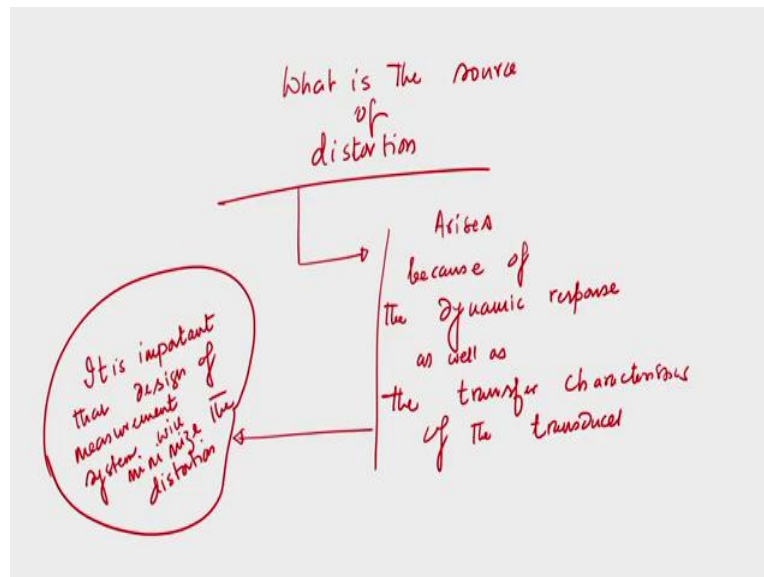 What is The source
of
distortion
Arises
because of
the dynamic response
as well as
the transfer characteristics
of the transducer
It is important
that design of
measurement
system will
minimize the
distortion